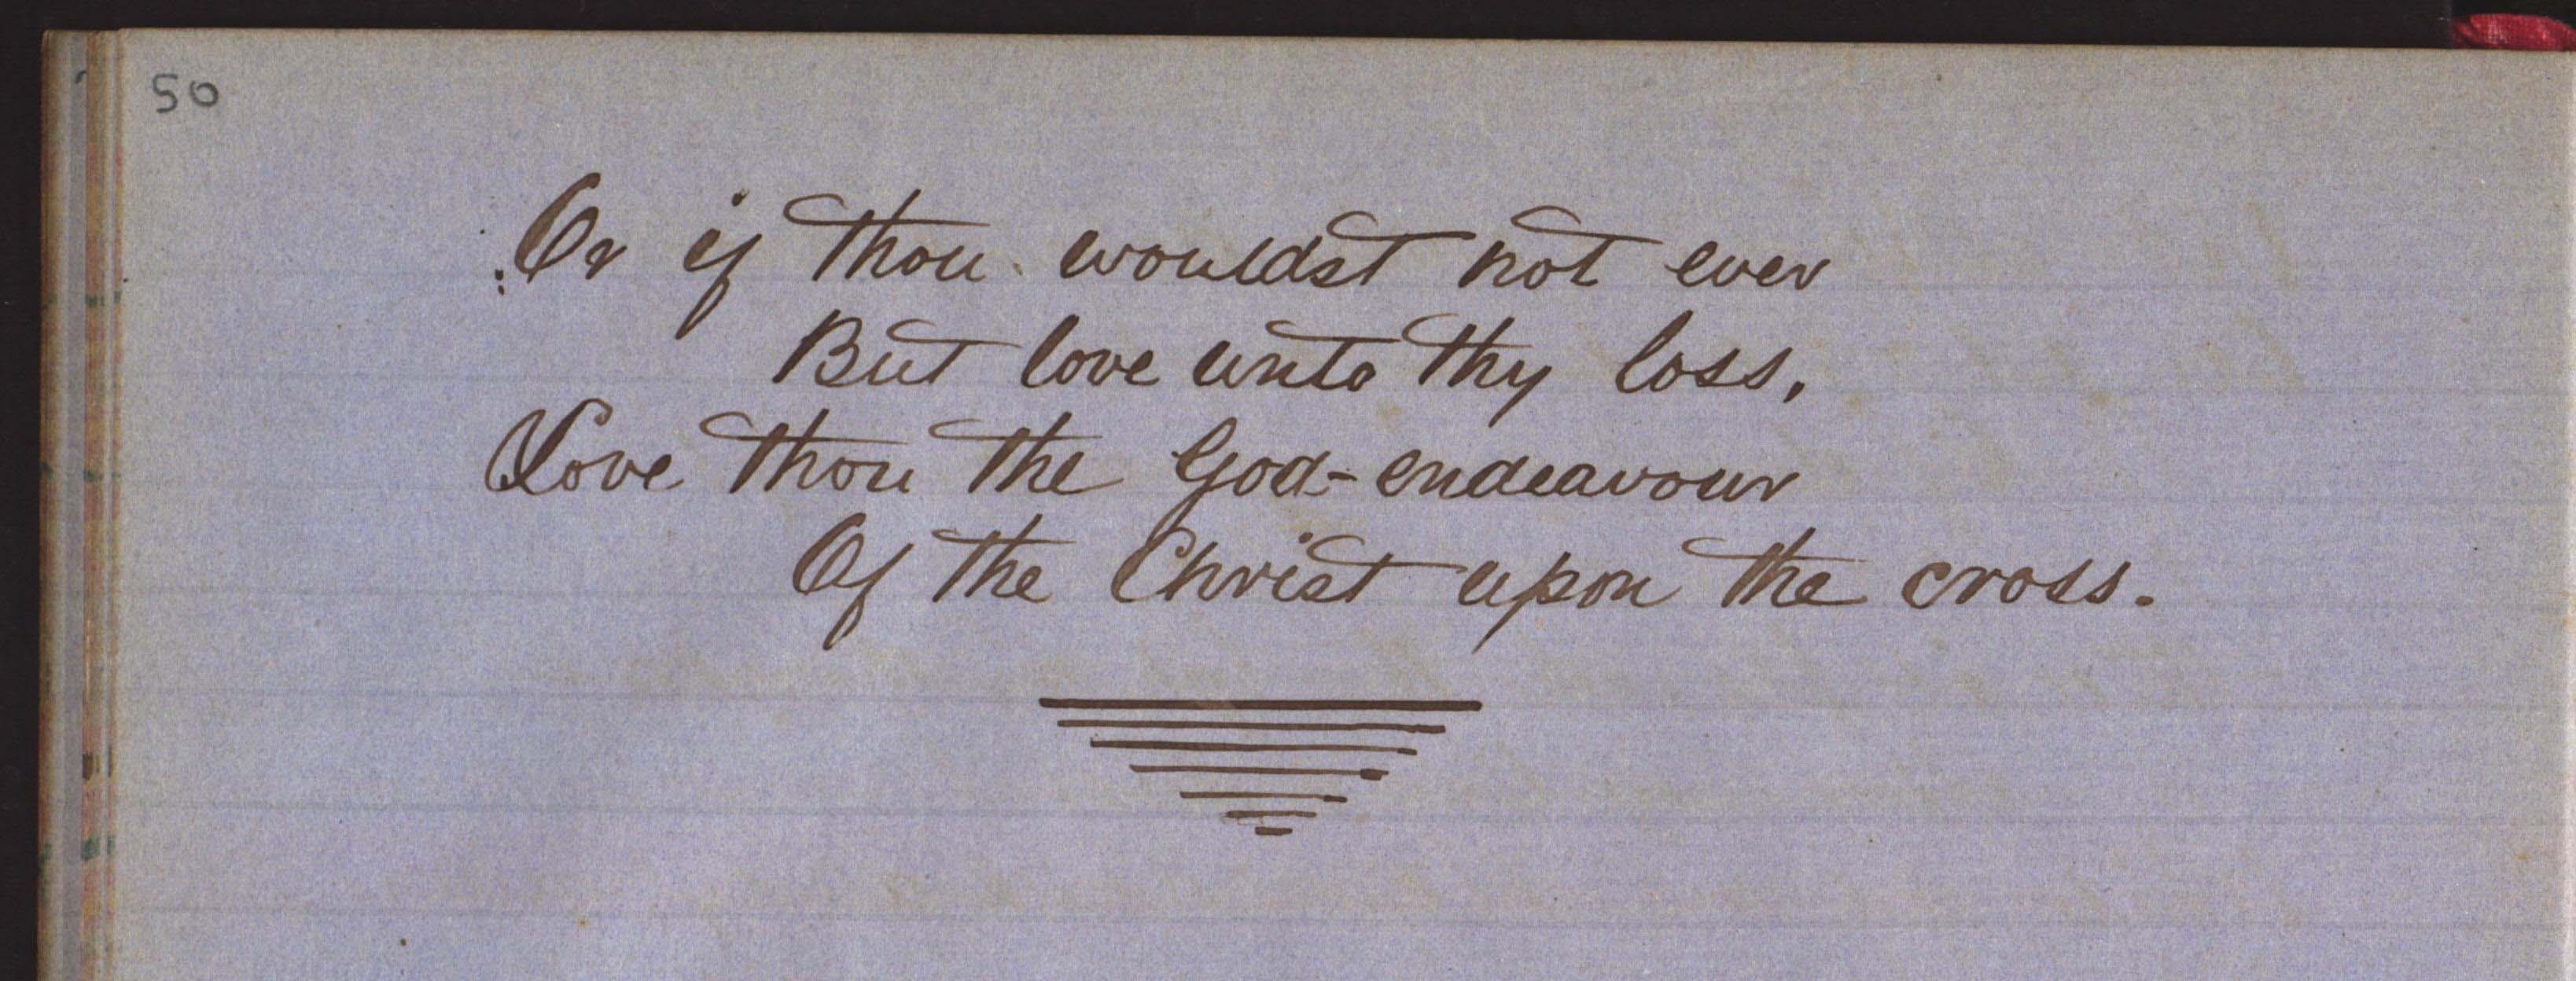 50
Or if thou wouldst not ever
But love unto thy loss,
Love thou the God-endeavour
Of the Christ upon the cross.